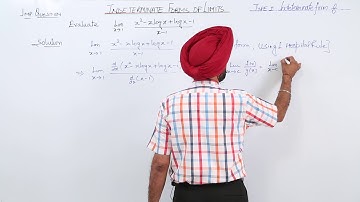 Imp Question INDETERMINATE FORMS OF LIMITS Type I Indeterminate form
Evaluate Lim x→1 x² - x log x + log x - 1 / x - 1
Solution Lim x→1 x² - x log x + log x - 1 form, (Using L Hospital Rule]
⇒ Lim x→1 d/dx (x² - x log x + log x - 1) / d/dx (x - 1) Lim x→c f(x)/g(x) = Lim x→c